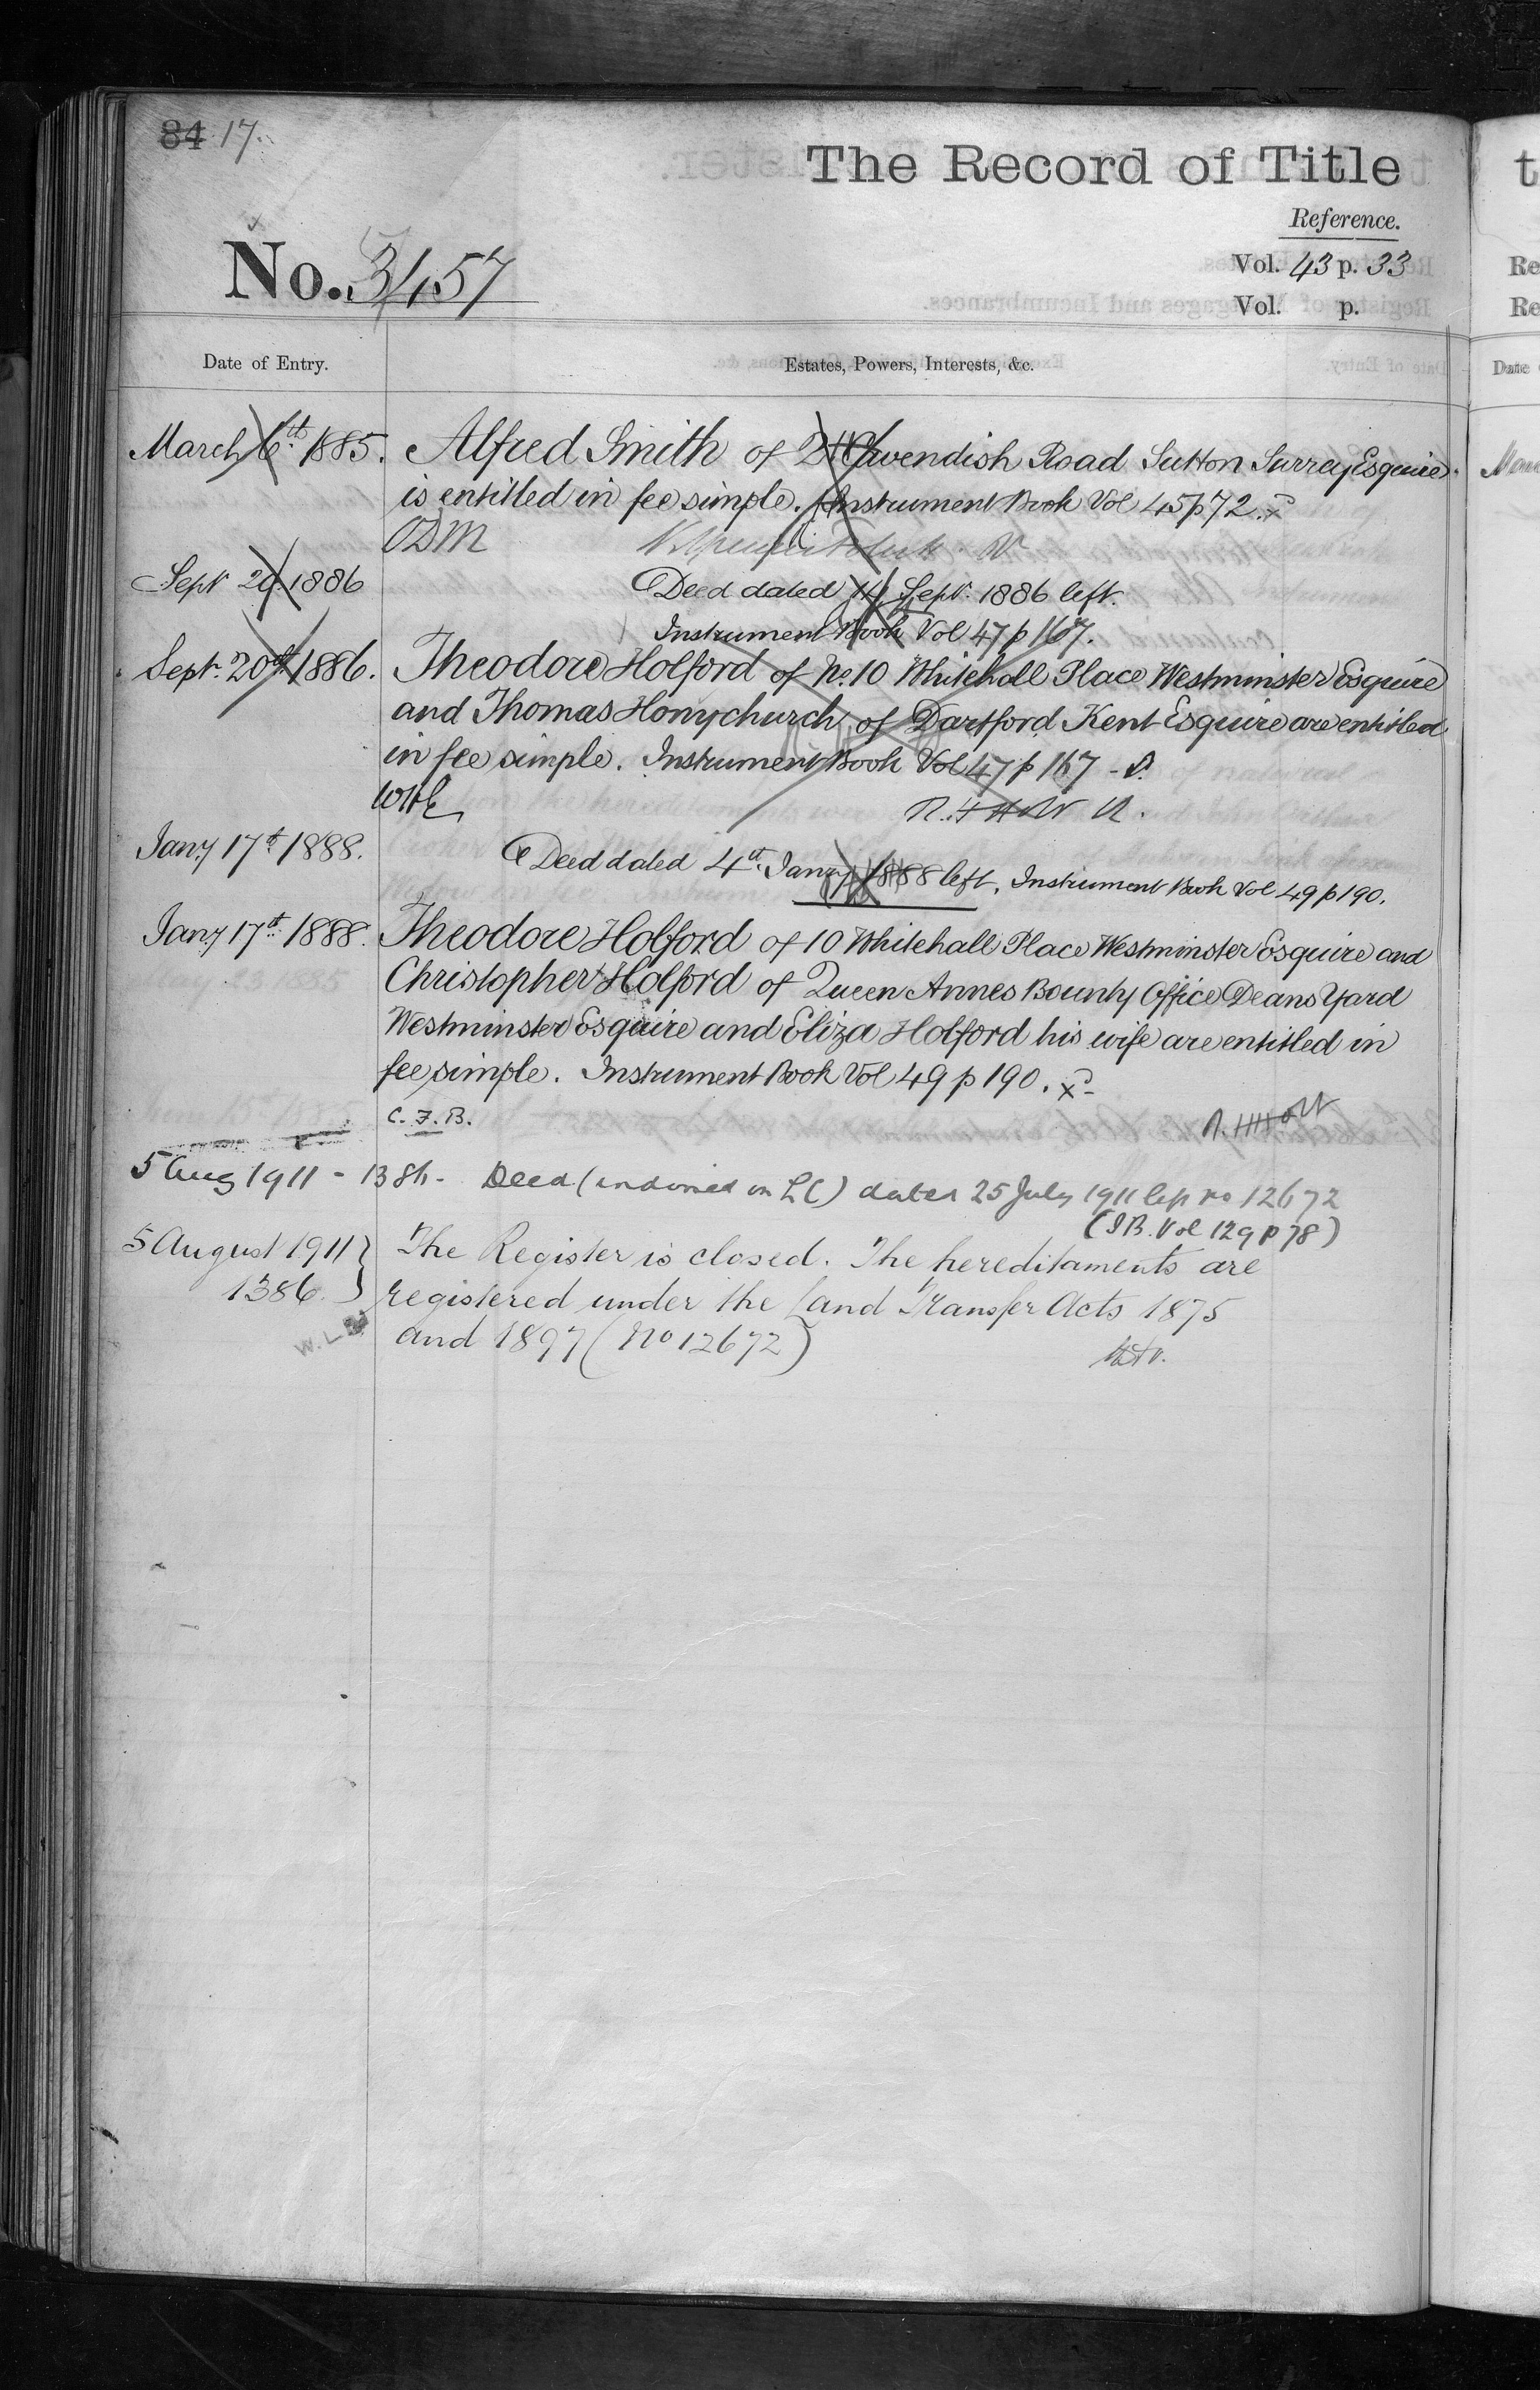 84 17.
The Record of Title
Reference.
No. 3457
Vol. 43 p. 33
Vol. p.
Date of Entry. Estates, Powers, Interests, &c.
March 6th 1885. Alfred Smith of Cavendish Road Sutton Surrey Esquire
is entitled in fee simple. Instrument Book Vol 45 p 72.
ODM
Sept 20 1886 Deed dated 14 Sept. 1886 left.
Instrument Book Vol 47 p 167.
Sept. 20th 1886. Theodore Holford of No. 10 Whitehall Place Westminster Esquire
and Thomas Honychurch of Dartford Kent Esquire are entitled
in fee simple. Instrument Book Vol 47 p 167
Jany 17th 1888. Deed dated 4th Jany 1888 left, Instrument Book Vol 49 p 190.
Jany 17th 1888. Theodore Holford of 10 Whitehall Place Westminster Esquire and
Christopher Holford of Queen Annes Bounty Office Deans Yard
Westminster Esquire and Eliza Holford his wife are entitled in
fee simple. Instrument Book Vol 49 p 190.
C. F. B. R. H. Holt
5 Aug 1911 - 1386. Deed (endorsed on LC) dated 25 July 1911 left no 12672
(I.B. Vol 129 p 78)
5 August 1911 } The Register is closed. The hereditaments are
1386. } registered under the Land Transfer Acts 1875
and 1897 (No 12672)